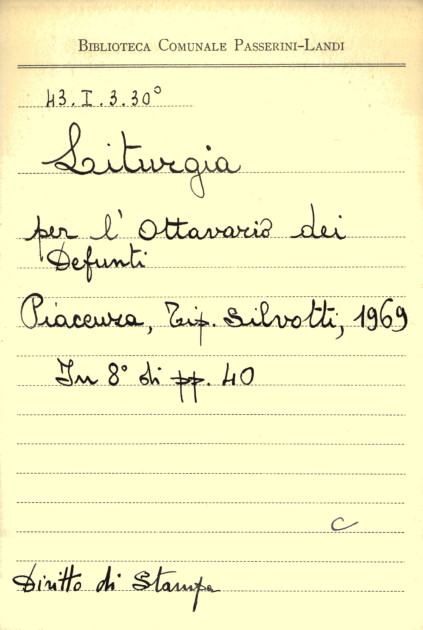 BIBLIOTECA COMUNALE PASSERINI-LANDI
43.I.3.30°
Liturgia
per l'Ottavario dei
Defunti
Piacenza, Tip. Silvotti, 1969
In 8° di pp. 40
C
Diritto di Stampa